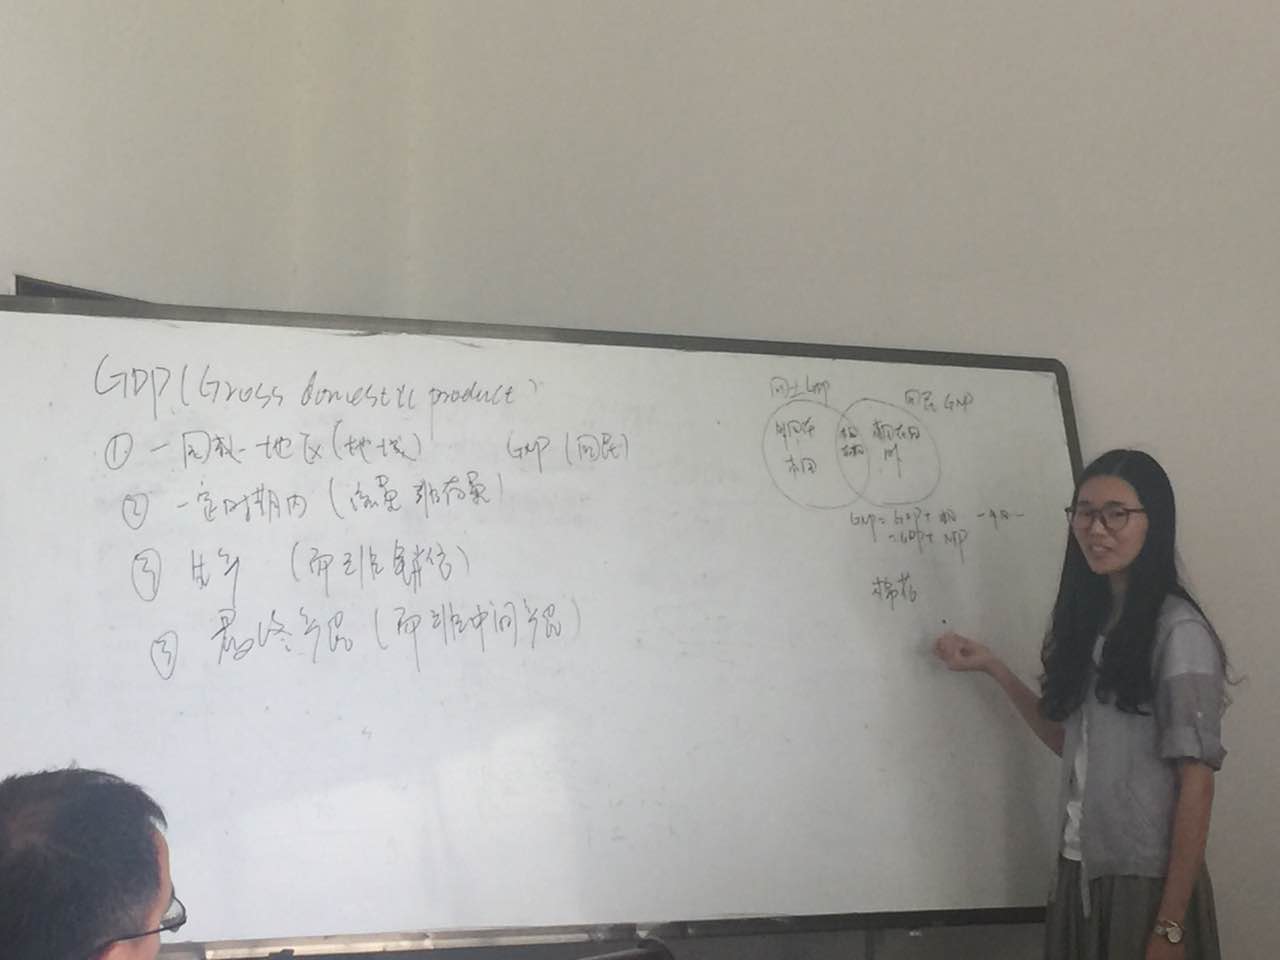 GDP (Gross domestic product)
① 一国或一地区(地域) GNP (国民)
② 一定时期内 (流量非存量)
③ 生产 (而非售价)
③ 最终产品 (而非中间产品)
国土 GDP
国民 GNP
外国在
本国
本国
在本国
本国在外国
GNP = GDP +
= GDP + NFP
棉花